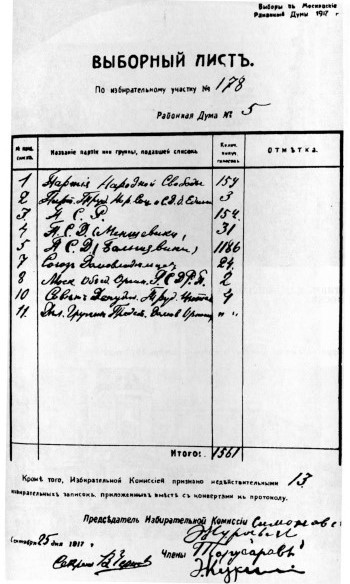 Выборы въ Московскіе
Районныя Думы 1917 г.
ВЫБОРНЫЙ ЛИСТЪ.
По избирательному участку № 178
Районная Дума № 5
№ пред. списк. Названіе партіи или группы, подавшей списокъ Колич. голосовъ. ОТМѢТКА.
1 Партія Народной Свободы 159
2 Парт. Труд. Нар. Соц. и С. Д. Един. 3
3 П. С. Р. 154
4 Р. С. Д. (Меншевики) 31
5 Р. С. Д. (Большевики) 1186
7 Союз Домовладельц. 24
8 Моск. Обед. Орган. Р. С. Д. Р. П. 2
10 Советъ Депут. Труд. 4
11 Группы Домов. " "
ИТОГО: 1561
Кромѣ того, Избирательной Комиссіей признано недѣйствительными 13
избирательныхъ записокъ, приложенныхъ вмѣстѣ съ конвертами къ протоколу.
Предсѣдатель Избирательной Комиссіи Симонова
Сентября 25 дня 1917 г.
Члены